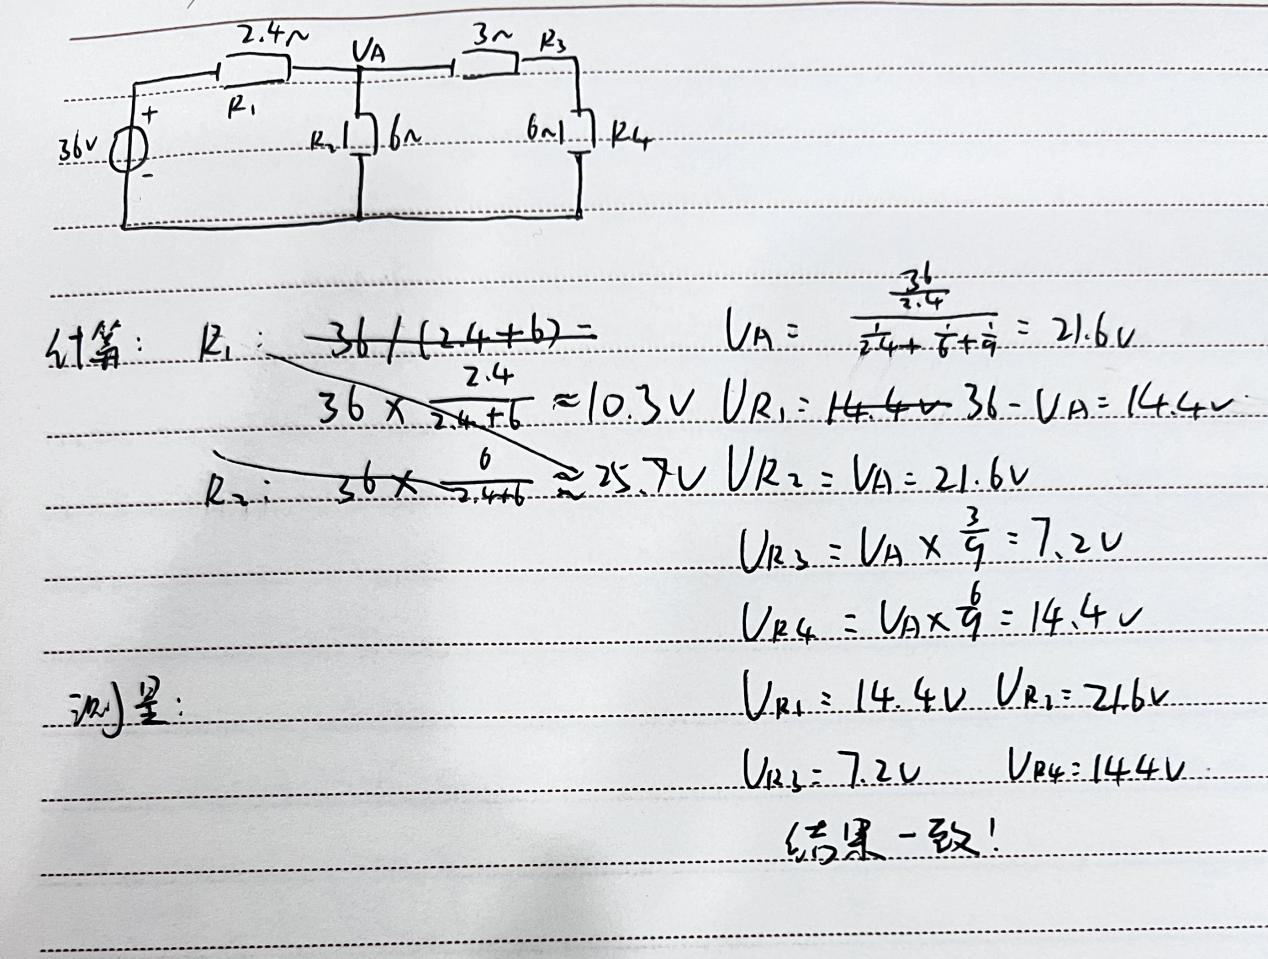 2.4~ VA 3~ R3
R1
36V + - R2 6~ 6~ R4
计算: R1: 36/(2.4+6)=
36 × 2.4/(2.4+6) ≈ 10.3V
R2: 36 × 6/(2.4+6) ≈ 25.7V
VA = (36/2.4)/(1/2.4 + 1/6 + 1/9) = 21.6V
UR1 = 14.4V 36 - VA = 14.4V
UR2 = VA = 21.6V
UR3 = VA × 3/9 = 7.2V
UR4 = VA × 6/9 = 14.4V
测量:
UR1 = 14.4V UR2 = 21.6V
UR3 = 7.2V UR4 = 14.4V
结果一致!